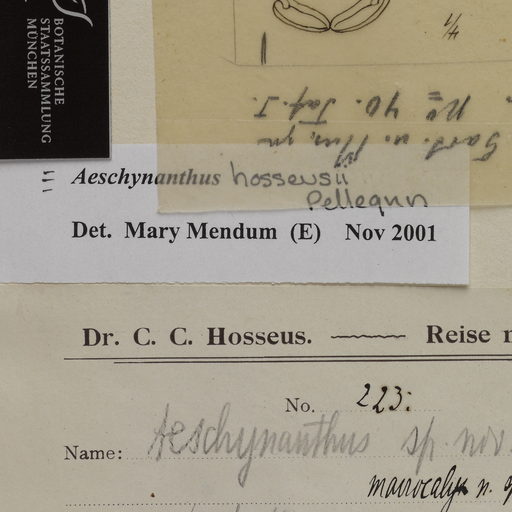 BOTANISCHE
STAATSSAMMLUNG
MÜNCHEN
No 40. Taf. I.
Aeschynanthus hosseusii
Pellegrin
Det. Mary Mendum (E) Nov 2001
Dr. C. C. Hosseus. Reise
No. 223:
Name: Aeschynanthus sp. nov.
macrocalyx n.